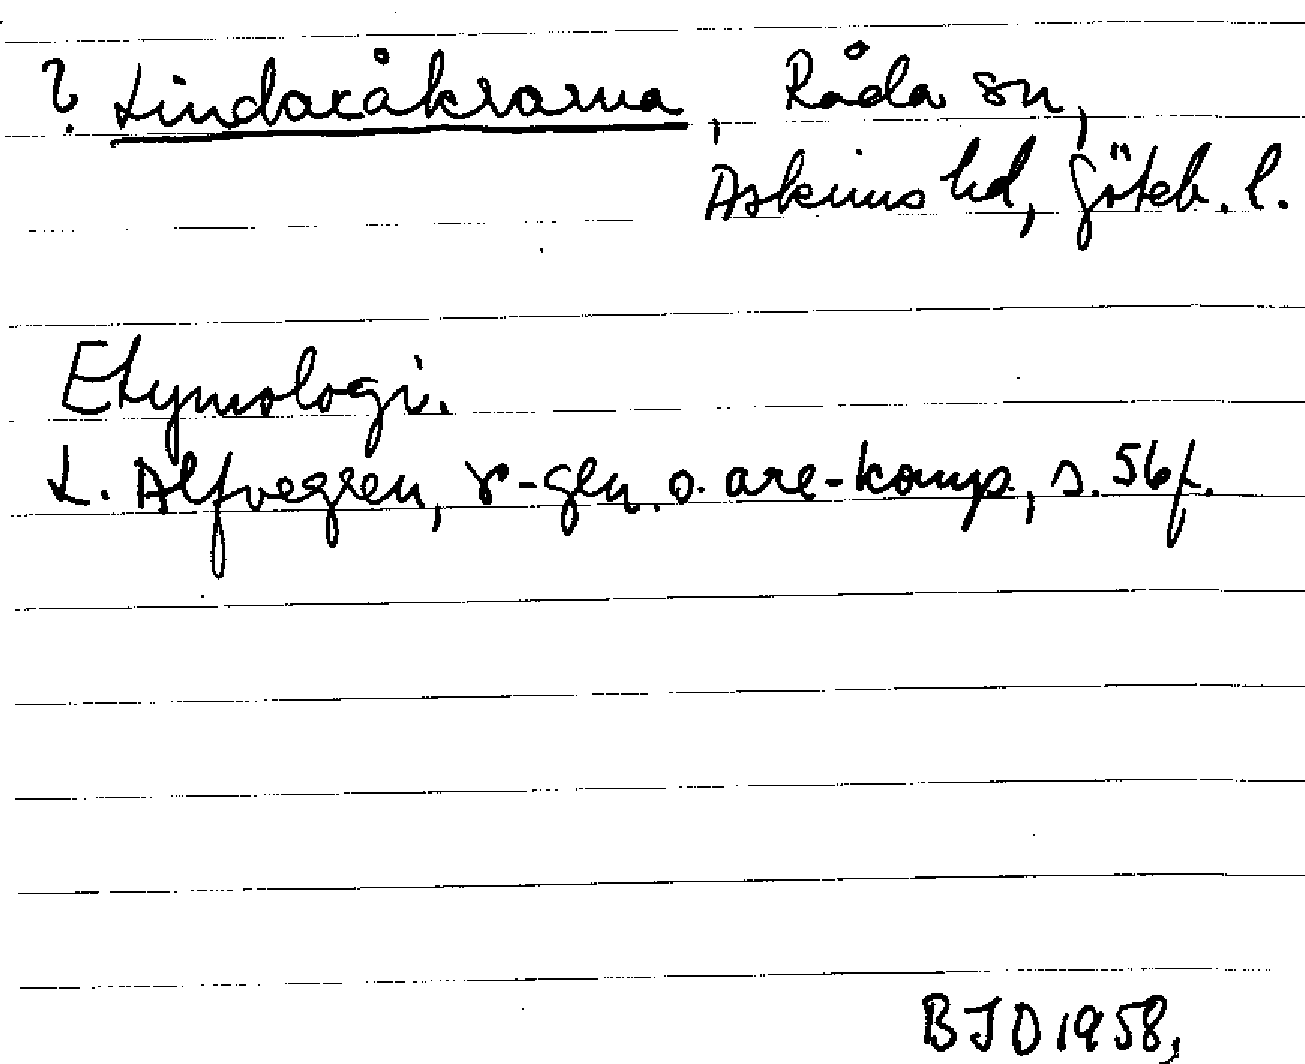 ? Lindaråkrarna, Råda sn,
Askims hd, Göteb. l.
Etymologi.
L. Alfvegren, r-gen. o. are-komp, s. 56f.
BJO 1958,